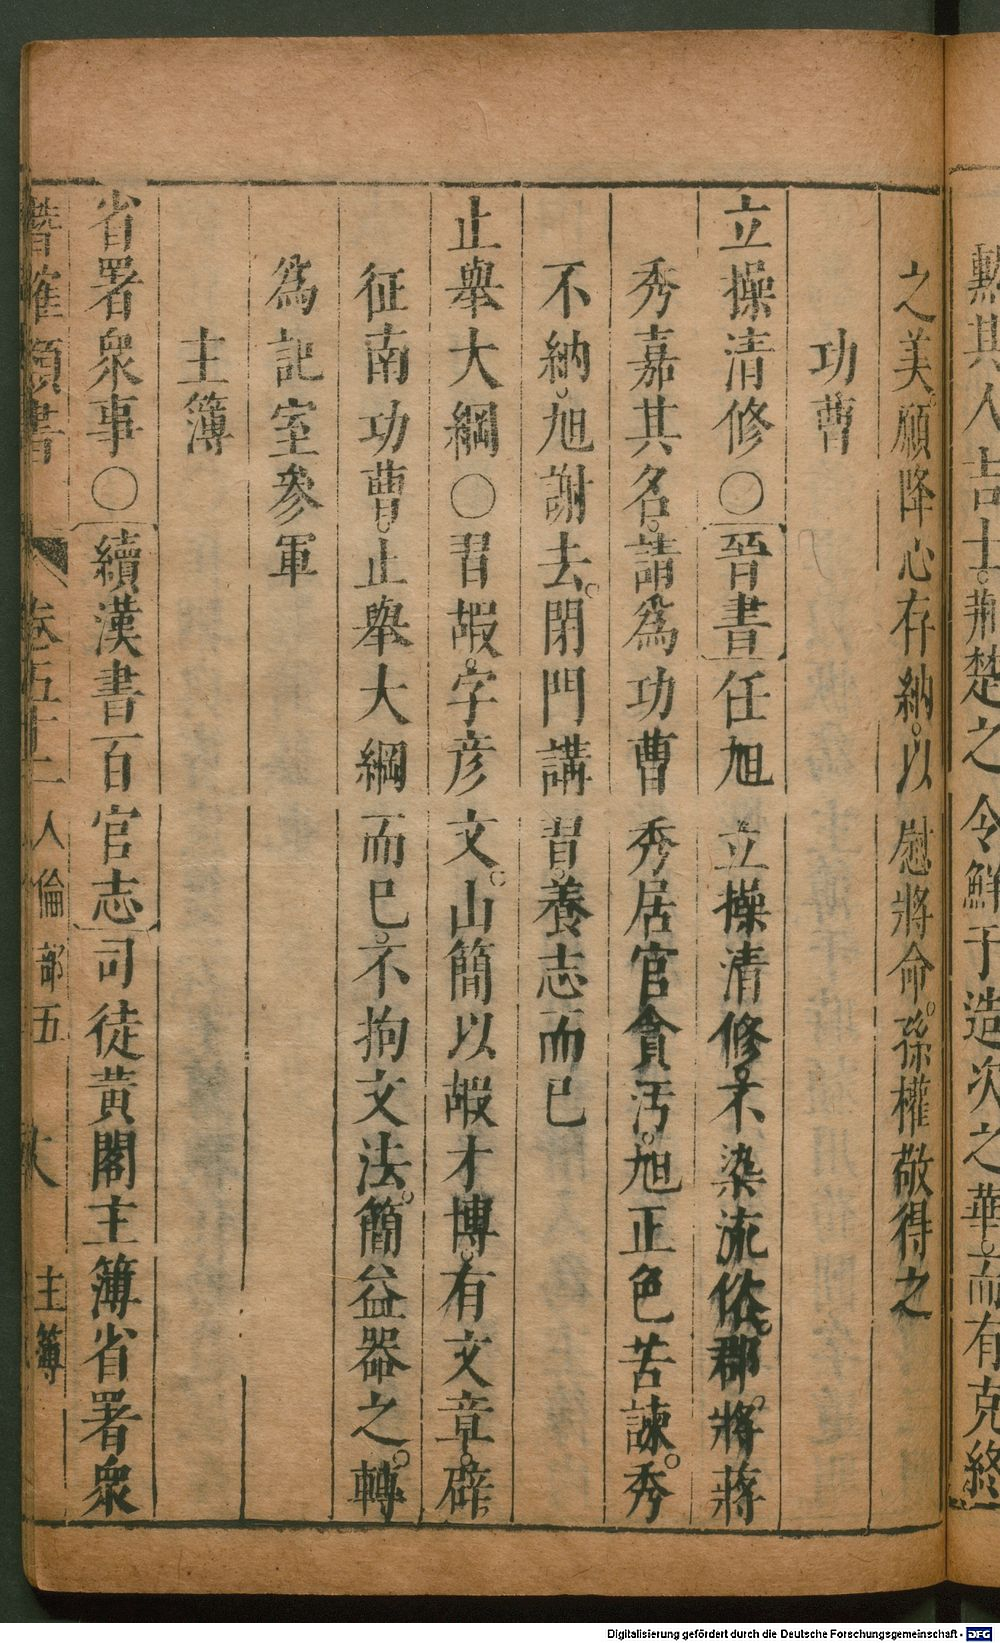 黥其人吉士荊楚之令鮮于造次之華而有克終
之美願降心存納以慰將命孫權敬得之
功曹
立操清修〇晉書任旭立操清修不染流俗郡將蔣
秀嘉其名請爲功曹秀居官貪汚旭正色苦諫秀
不納旭謝去閉門講習養志而已
止舉大綱〇習嘏字彦文山簡以嘏才博有文章辟
征南功曹止舉大綱而已不拘文法簡益器之轉
爲記室參軍
主簿
省署衆事〇續漢書百官志司徒黃閣主簿省署衆
潛確類書 卷五十二 人倫部五 主簿
Digitalisierung gefördert durch die Deutsche Forschungsgemeinschaft - DFG